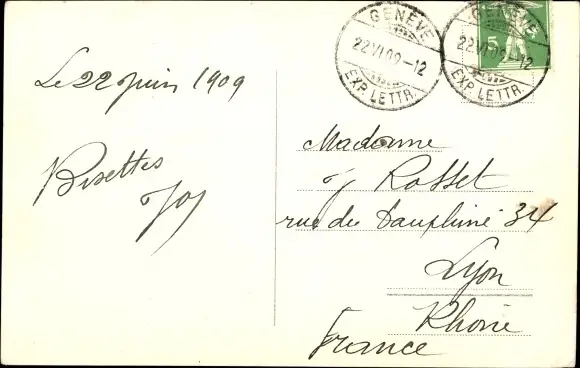 Le 22 juin 1909
Bisettes
Jos
GENÈVE
22 VI 09-12
EXP. LETTR.
GENÈVE
22 VI 09-12
EXP. LETTR.
5
Madame
J Rosset
rue du Dauphiné 34
Lyon
Rhône
France